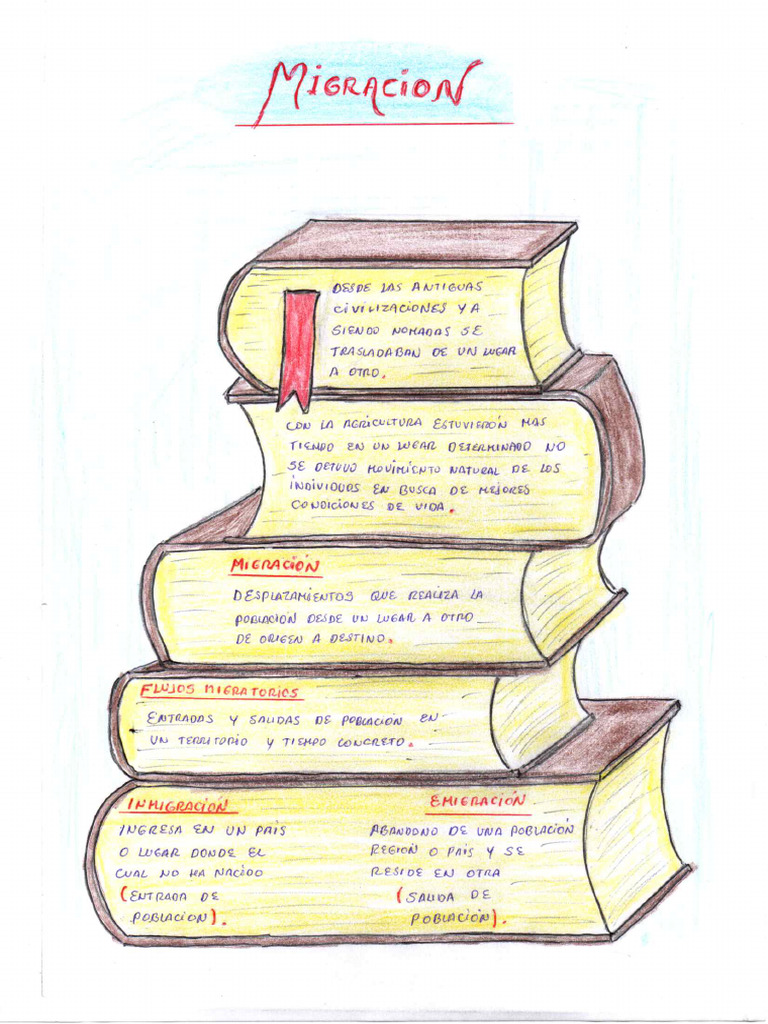 MIGRACION
DESDE LAS ANTIGUAS
CIVILIZACIONES Y A
SIENDO NOMADAS SE
TRASLADABAN DE UN LUGAR
A OTRO.
CON LA AGRICULTURA ESTUVIERÓN MAS
TIENDO EN UN LUGAR DETERMINADO NO
SE DETUVO MOVIMIENTO NATURAL DE LOS
INDIVIDUOS EN BUSCA DE MEJORES
CONDICIONES DE VIDA.
MIGRACIÓN
DESPLAZAMIENTOS QUE REALIZA LA
POBLACIÓN DESDE UN LUGAR A OTRO
DE ORIGEN A DESTINO.
FLUJOS MIGRATORIOS
ENTRADAS Y SALIDAS DE POBLACIÓN EN
UN TERRITORIO Y TIEMPO CONCRETO.
INMIGRACIÓN
INGRESA EN UN PAÍS
O LUGAR DONDE EL
CUAL NO HA NACIDO
(ENTRADA DE
POBLACION).
EMIGRACIÓN
ABANDONO DE UNA POBLACIÓN
REGIÓN O PAÍS Y SE
RESIDE EN OTRA
(SALIDA DE
POBLACIÓN).